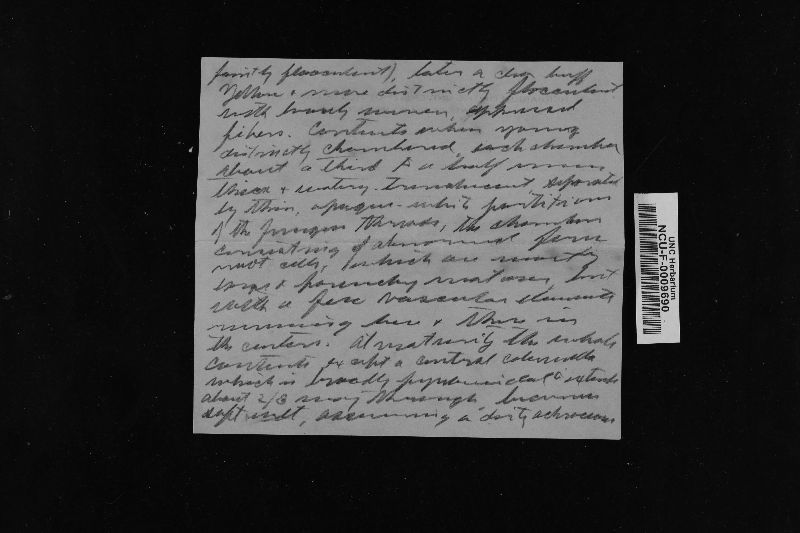 faintly flocculent), later a clear buff
yellow & more distinctly flocculent
with loosely woven, appressed
fibers. Contents when young
distinctly chambered, each chamber
about a third to a half mm
thick & watery-translucent, separated
by thin, opaque-white partitions
of the fungus threads, the chambers
consisting of abnormal fern
root cells, which are mostly
large & parenchymatous, but
with a few vascular elements
running here & there in
the centers. At maturity the whole
contents except a central columella
which is broadly pyramidal & extends
about 2/3 way through becomes
soft wet, assuming a dirty ochraceous
UNC Herbarium
NCU-F-0009690